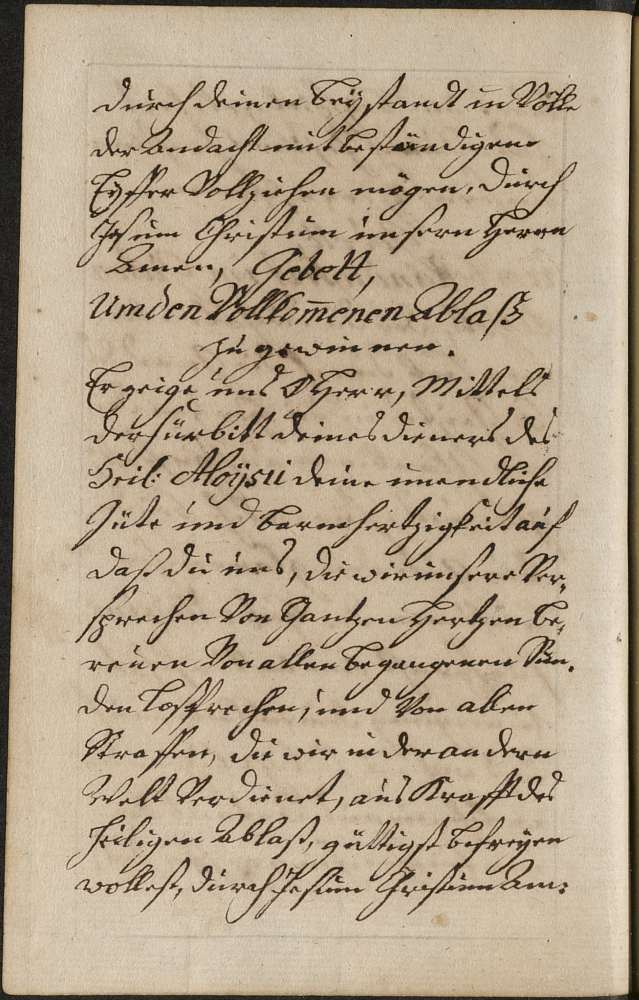 durch deinen Beÿstandt in Völle
der Andacht mit beständigem
Eÿffer Vollziehen mögen, durch
Jesum Christum unsern Herrn
Amen, Gebett,
Um den Vollkom̄enen Ablaß
zu gewinnen.
Erzeige uns O Herr, Mittels
der fürbitt deines dieners des
Heil: Aloÿsii deine unendliche
Güte und barmhertzigkeit auf
daß du uns, die wir unsere Ver„
sprechen Von Gantzen Hertzen be„
reuen Von allen begangenen Sün„
den losspreche​n, und Von allen
Straffen, die wir in der andern
Welt Verdienet, aus Krafft des
heiligen Ablaß, güttigst befreyen
wollest, durch Jesum Christum Am: